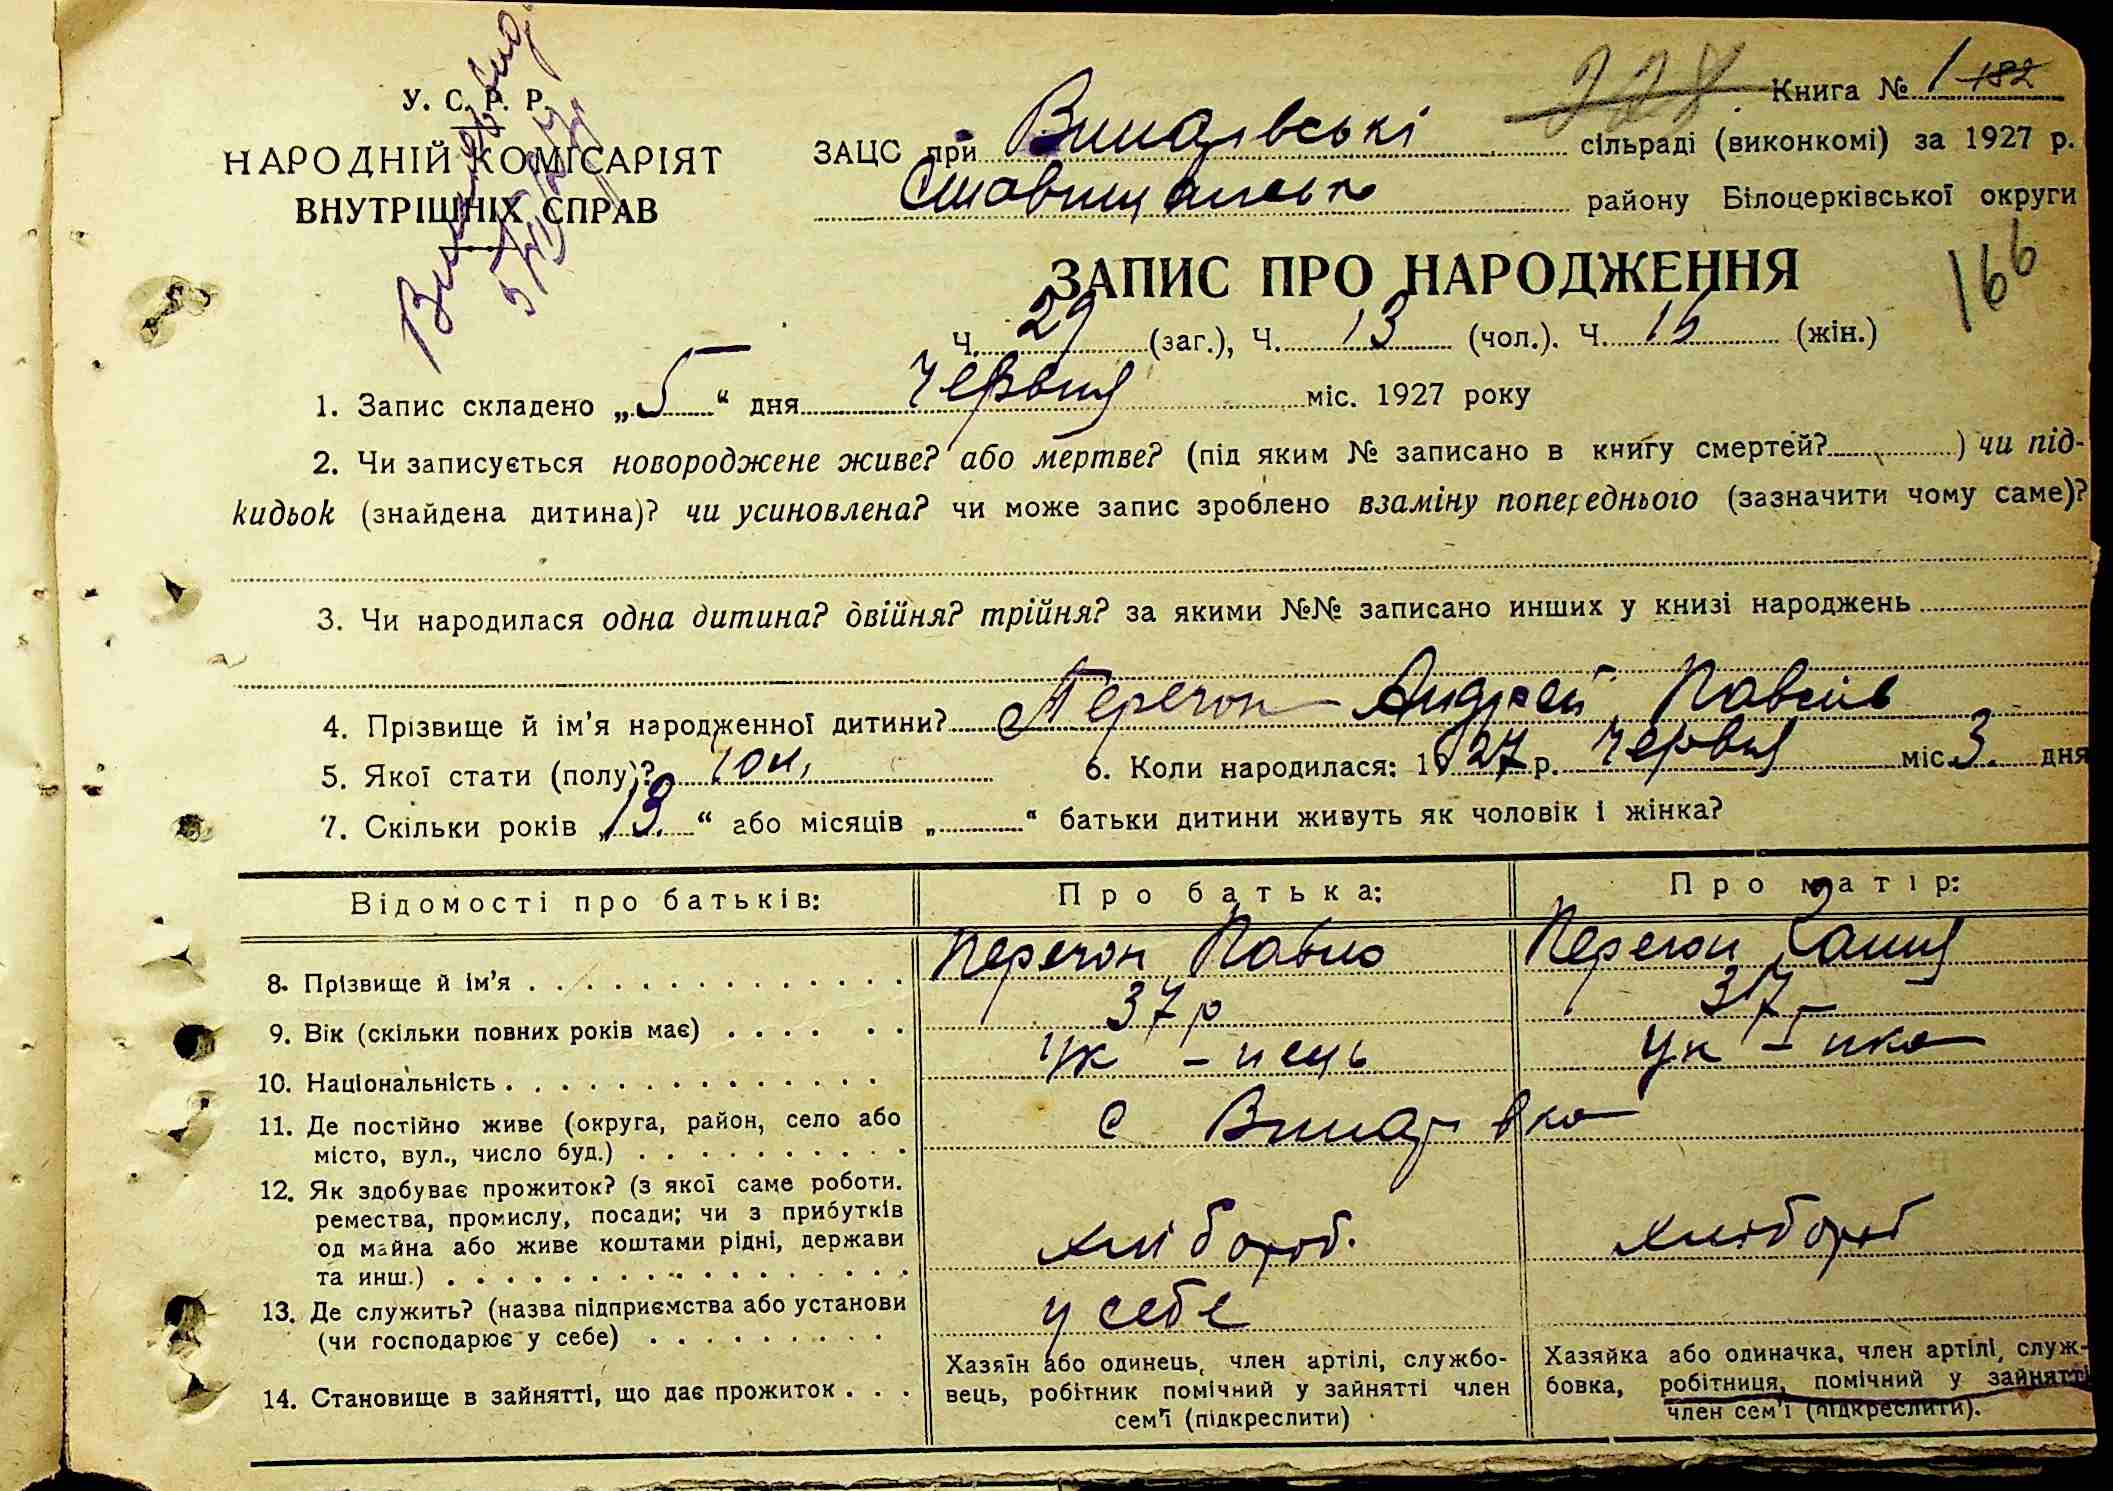 У. С. Р. Р.
НАРОДНІЙ КОМІСАРІЯТ
ВНУТРІШНІХ СПРАВ
228 Книга № 1 182
ЗАЦС при Винарівські сільраді (виконкомі) за 1927 р.
Ставищансько району Білоцерківської округи
ЗАПИС ПРО НАРОДЖЕННЯ
166
Ч. 29 (заг.), Ч. 13 (чол.). Ч. 16 (жін.)
1. Запис складено „5“ дня червня міс. 1927 року
2. Чи записується новороджене живе? або мертве? (під яким № записано в книгу смертей? ) чи під-
кидьок (знайдена дитина)? чи усиновлена? чи може запис зроблено взаміну попереднього (зазначити чому саме)?
3. Чи народилася одна дитина? двійня? трійня? за якими №№ записано инших у книзі народжень
4. Прізвище й ім'я народженної дитини? Перегон Андрей Павлів
5. Якої стати (полу)? чол. 6. Коли народилася: 1927 р. червня міс. 3. дня
7. Скільки років „13.“ або місяців „ “ батьки дитини живуть як чоловік і жінка?
Відомості про батьків: Про батька: Про матір:
8. Прізвище й ім'я Перегон Павло Перегон Ганна
9. Вік (скільки повних років має) 37 р 37
10. Національність Ук-нець Ук-нка
11. Де постійно живе (округа, район, село або
місто, вул., число буд.) с Винарівка
12. Як здобуває прожиток? (з якої саме роботи.
ремества, промислу, посади; чи з прибутків
од майна або живе коштами рідні, держави
та инш.) хлібороб. хлібороб
13. Де служить? (назва підприємства або установи
(чи господарює у себе) у себе
14. Становище в зайнятті, що дає прожиток
Хазяїн або одинець, член артілі, службо-
вець, робітник помічний у зайнятті член
сем'ї (підкреслити)
Хазяйка або одиначка, член артілі, служ-
бовка, робітниця, помічний у зайнятті
член сем'ї (підкреслити).